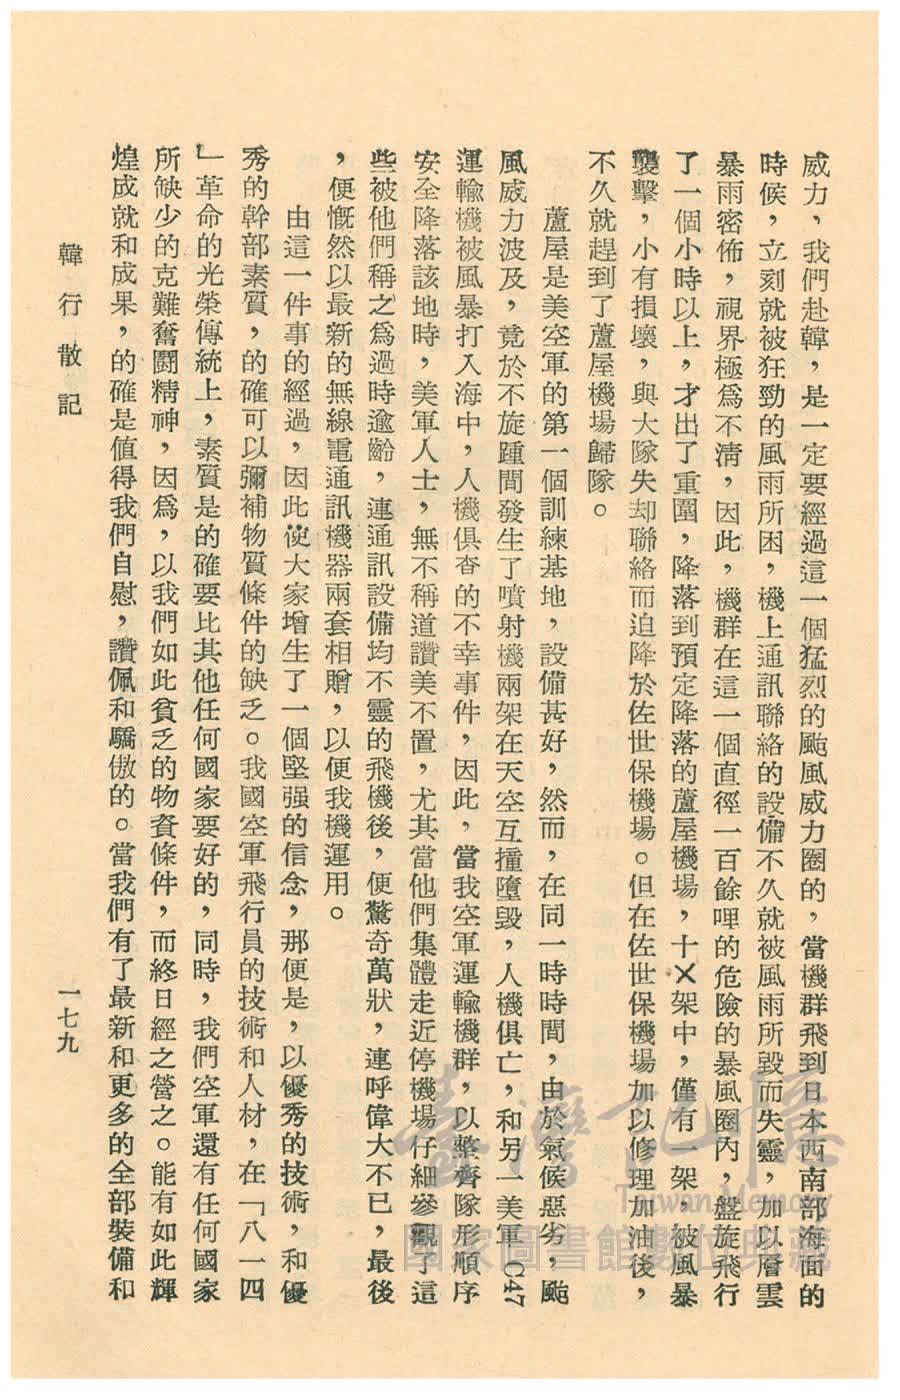 威力，我們赴韓，是一定要經過這一個猛烈的颱風威力圈的，當機群飛到日本西南部海面的
時候，立刻就被狂勁的風雨所困，機上通訊聯絡的設備不久就被風雨所毀而失靈，加以層雲
暴雨密佈，視界極爲不淸，因此，機群在這一個直徑一百餘哩的危險的暴風圈內，盤旋飛行
了一個小時以上，才出了重圍，降落到預定降落的蘆屋機場，十×架中，僅有一架，被風暴
襲擊，小有損壞，與大隊失却聯絡而迫降於佐世保機場。但在佐世保機場加以修理加油後，
不久就趕到了蘆屋機場歸隊。
蘆屋是美空軍的第一個訓練基地，設備甚好，然而，在同一時時間，由於氣候惡劣，颱
風威力波及，竟於不旋踵間發生了噴射機兩架在天空互撞墮毀，人機俱亡，和另一美軍C47
運輸機被風暴打入海中，人機俱杳的不幸事件，因此，當我空軍運輸機群，以整齊隊形順序
安全降落該地時，美軍人士，無不稱道讚美不置，尤其當他們集體走近停機場仔細參觀了這
些被他們稱之爲過時逾齡，連通訊設備均不靈的飛機後，便驚奇萬狀，連呼偉大不已，最後
，便慨然以最新的無線電通訊機器兩套相贈，以便我機運用。
由這一件事的經過，因此使大家增生了一個堅强的信念，那便是，以優秀的技術，和優
秀的幹部素質，的確可以彌補物質條件的缺乏。我國空軍飛行員的技術和人材，在「八一四
」革命的光榮傳統上，素質是的確要比其他任何國家要好的，同時，我們空軍還有任何國家
所缺少的克難奮鬪精神，因爲，以我們如此貧乏的物資條件，而終日經之營之。能有如此輝
煌成就和成果，的確是値得我們自慰，讚佩和驕傲的。當我們有了最新和更多的全部裝備和
韓行散記
一七九
臺灣記憶
Taiwan Memory
國家圖書館數位典藏